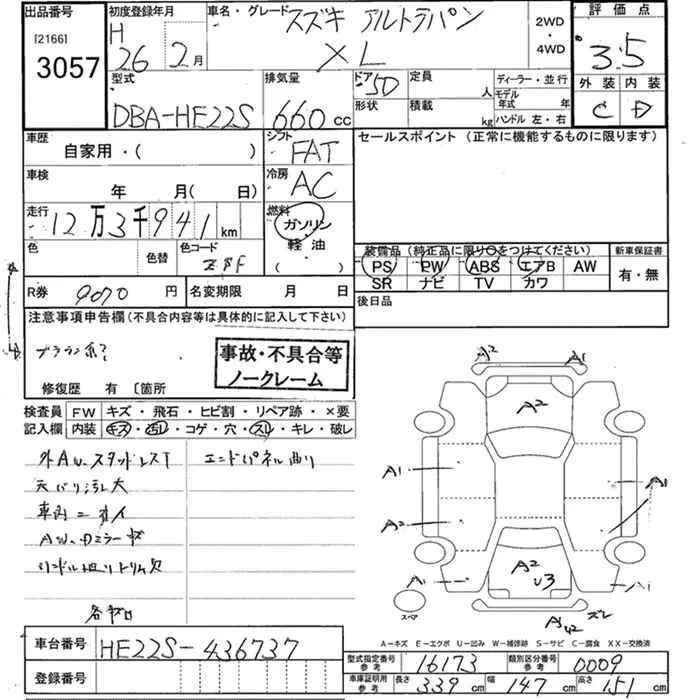 出品番号 [2166] 3057
初度登録年月 H 26年2月
車名・グレード スズキ アルトラパン XL
2WD・4WD
評価点 3.5
外装 C 内装 D
型式 DBA-HE22S
排気量 660 cc
ドア 5D
定員 人
形状
積載 kg
ディーラー・並行
モデル年式 年
ハンドル 左・右
車歴 自家用・( )
シフト FAT
セールスポイント (正常に機能するものに限ります)
車検 年 月( 日)
冷房 AC
走行 12万3千941 km
燃料 ガソリン 軽油 ( )
色 色替 色コード
装備品 (純正品に限り○をつけてください)
PS PW ABS エアB AW
SR ナビ TV カワ
新車保証書 有・無
R券 9070 円
名変期限 月 日
後日品
注意事項申告欄 (不具合内容等は具体的に記入して下さい)
事故・不具合等
ノークレーム
修復歴 有 〔箇所
検査員記入欄
FW キズ・飛石・ヒビ割・リペア跡・×要
内装 キズ・汚レ・コゲ・穴・スレ・キレ・破レ
外AW.スタッドレスT
エンドパネル曲り
天バリ汚レ大
A2 A1
A2
A1 A1
A2
A2 U3
A1 A1
スペア
A3 U2 ズレ
A-キズ E-エクボ U-凹み W-補修跡 S-サビ C-腐食 XX-交換済
車台番号 HE22S-436737
登録番号
型式指定番号 参考 16173
類別区分番号 参考 0009
車庫証明用 参考 長さ 339 cm 幅 147 cm 高さ 151 cm